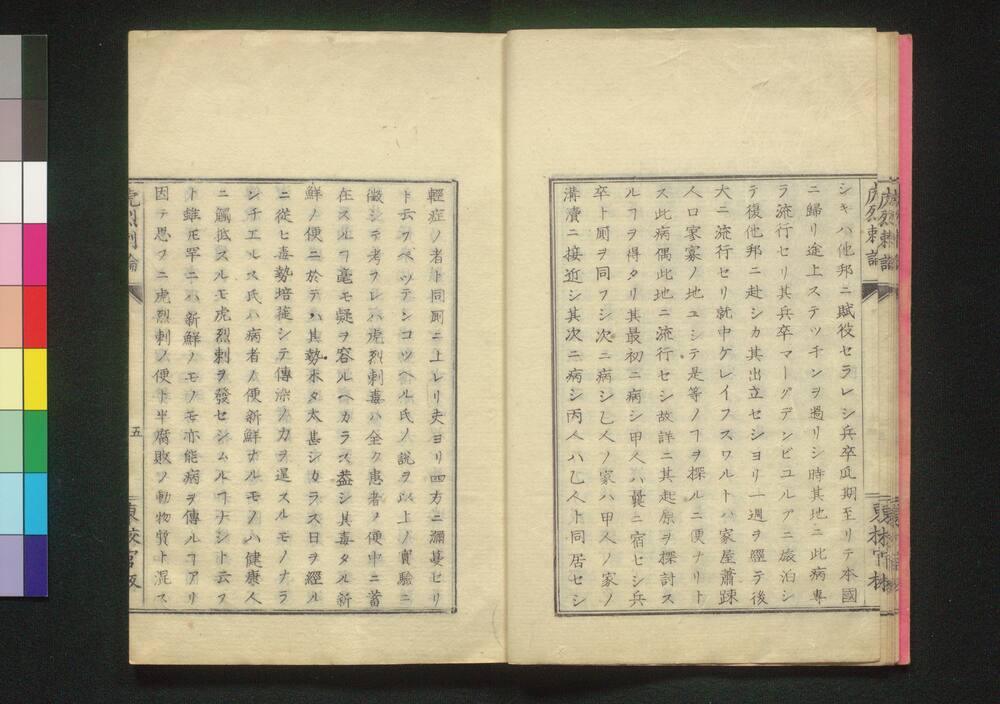 シキハ他邦ニ賦役セラレシ兵卒瓜期至リテ本國
ニ歸リ途上ステツチンヲ過リシ時其地ニ此病専
ラ流行セリ其兵卒マーグデンビユルアニ旅泊シ
テ復他邦ニ赴シカ其出立セシヨリ一週ヲ經テ後
大ニ流行セリ就中ケレイフスワルトハ家屋蕭踈
人口寡寡ノ地ユシテ是等ノヿヲ探ルニ便ナリト
ス此病偶此地ニ流行セシ故詳ニ其起原ヲ探討ス
ルヿヲ得タリ其最初ニ病シ甲人ハ曩ニ宿セシ兵
卒ト厠ヲ同フシ次ニ病シ乙人ノ家ハ甲人ノ家ノ
溝瀆ニ接近シ其次ニ病シ丙人ハ乙人ト同居セシ
輕症ノ者ト同厠ニ上レリ夫ヨリ四方ニ瀰蔓セリ
ト云フペツテンコツヘル氏ノ説ヲ以上ノ實驗ニ
徴シテ考フレハ虎烈刺毒ハ全ク患者ノ便中ニ蓄
在スルヿ毫モ疑ヲ容ルヘカラス葢シ其毒タル新
鮮ノ便ニ於テハ其勢未タ太甚シカラス日ヲ經ル
ニ從ヒ毒勢培蓰シテ傳染ノ力ヲ逞スルモノナラ
ンチエルス氏ハ病者ノ便新鮮ナルモノハ健康人
ニ觸抵スルモ虎烈刺ヲ發セシムルヿナシト云フ
ト雖𪜈罕ニハ新鮮ノモノモ亦能病ヲ傳ルヿアリ
因テ思フニ虎烈刺ノ便ト半腐敗ノ動物質ト混ス
虎烈刺論
五
東校官版